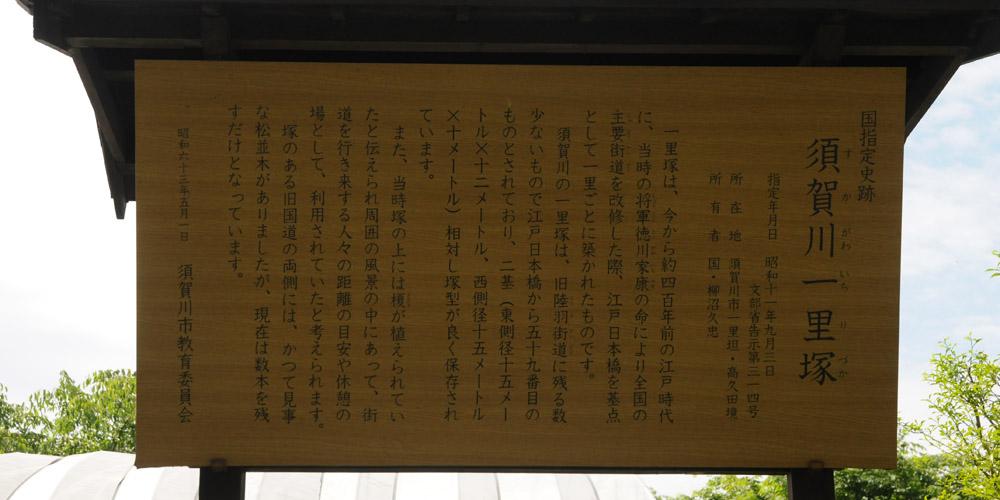 国指定史跡
須賀川一里塚
すかがわいちりづか
指定年月日 昭和十一年九月三日
文部省告示第三一四号
所在地 須賀川市一里坦・高久田境
所有者 国・柳沼久忠
一里塚は、今から約四百年前の江戸時代
に、当時の将軍徳川家康の命により全国の
主要街道を改修した際、江戸日本橋を基点
として一里ごとに築かれたものです。
須賀川の一里塚は、旧陸羽街道に残る数
少ないもので江戸日本橋から五十九番目の
ものとされており、二基（東側径十五メー
トル×十二メートル、西側径十五メートル
×十メートル）相対し塚型が良く保存され
ています。
また、当時塚の上には榎が植えられてい
たと伝えられ周囲の風景の中にあって、街
道を行き来する人々の距離の目安や休憩の
場として、利用されていたと考えられます。
塚のある旧国道の両側には、かつて見事
な松並木がありましたが、現在は数本を残
すだけとなっています。
昭和六十三年五月一日 須賀川市教育委員会